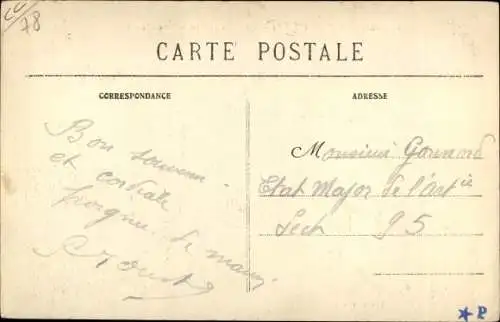 78
CARTE POSTALE
CORRESPONDANCE
ADRESSE
Bon souvenir
et cordiale
poignée de main
Monsieur Gournod
Etat Major de l'Artie
Sect 95
★ P